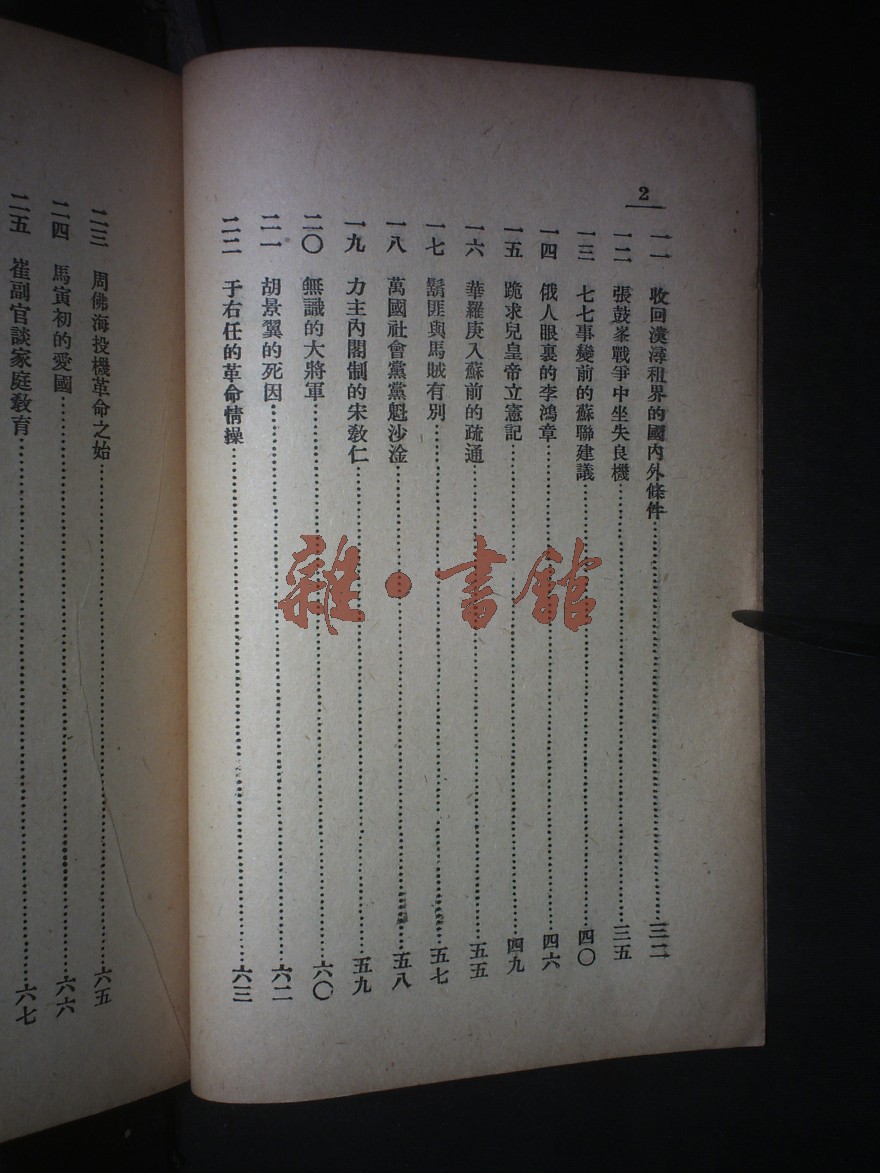 2
一一 收回漢潯租界的國內外條件……三二
一二 張鼓峯戰爭中坐失良機……三五
一三 七七事變前的蘇聯建議……四〇
一四 俄人眼裏的李鴻章……四六
一五 跪求兒皇帝立憲記……四九
一六 華羅庚入蘇前的疏通……五五
一七 鬍匪與馬賊有別……五七
一八 萬國社會黨黨魁沙淦……五八
一九 力主內閣制的宋教仁……五九
二〇 無識的大將軍……六〇
二一 胡景翼的死因……六二
二二 于右任的革命情操……六三
二三 周佛海投機革命之始……六五
二四 馬寅初的愛國……六六
二五 崔副官談家庭教育……六七
雜·書館